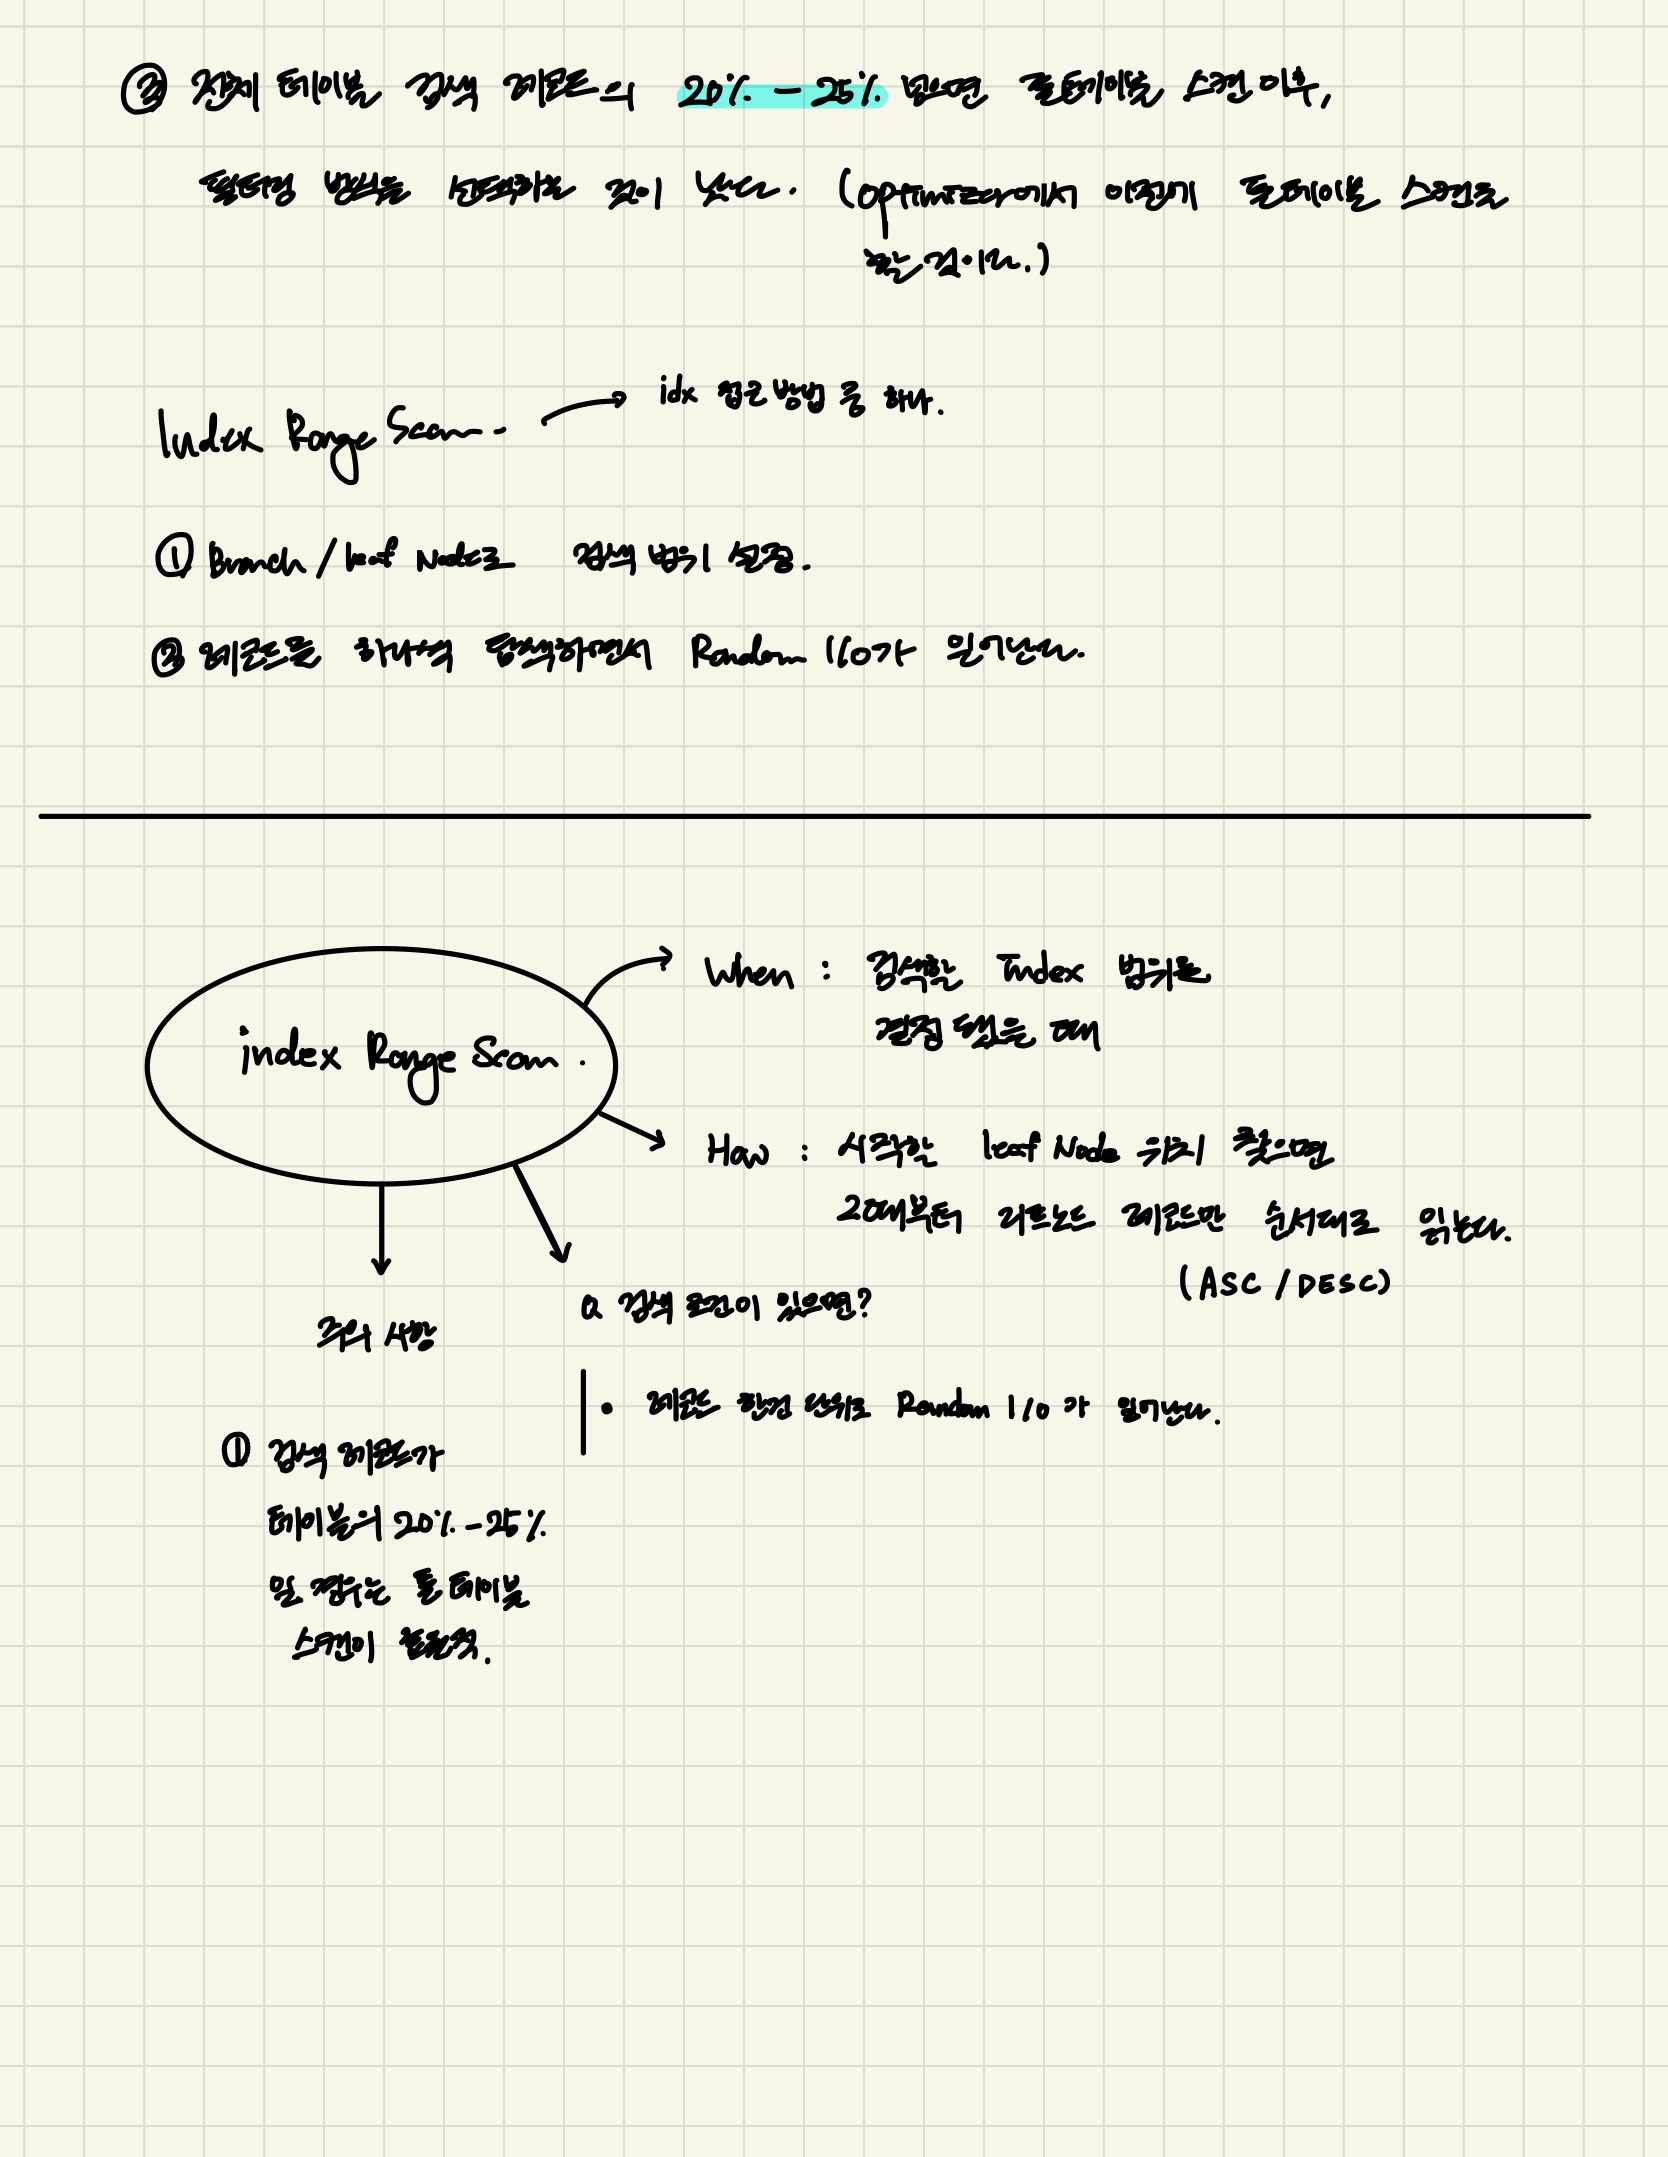 ② 전체 테이블 검색 레코드의 20% - 25% 넘으면 풀테이블 스캔 이후,
필터링 방식을 선택하는 것이 낫다. (optimizer에서 이전에 풀테이블 스캔을
할 것이다.)
Index Range Scan. → idx 접근 방법 중 하나.
① Branch / leaf Node로 검색 범위 설정.
② 레코드를 하나씩 탐색하면서 Random I/O가 일어난다.
index Range Scan.
When : 검색할 Index 범위를
결정 됐을 때
How : 시작할 leaf Node 위치 찾으면
그때부터 리프노드 레코드만 순서대로 읽는다.
(ASC / DESC)
a 검색 조건이 있으면?
• 레코드 한건 단위로 Random I/O 가 일어난다.
주의 사항
① 검색 레코드가
테이블의 20% - 25%
일 경우는 풀 테이블
스캔이 효율적.